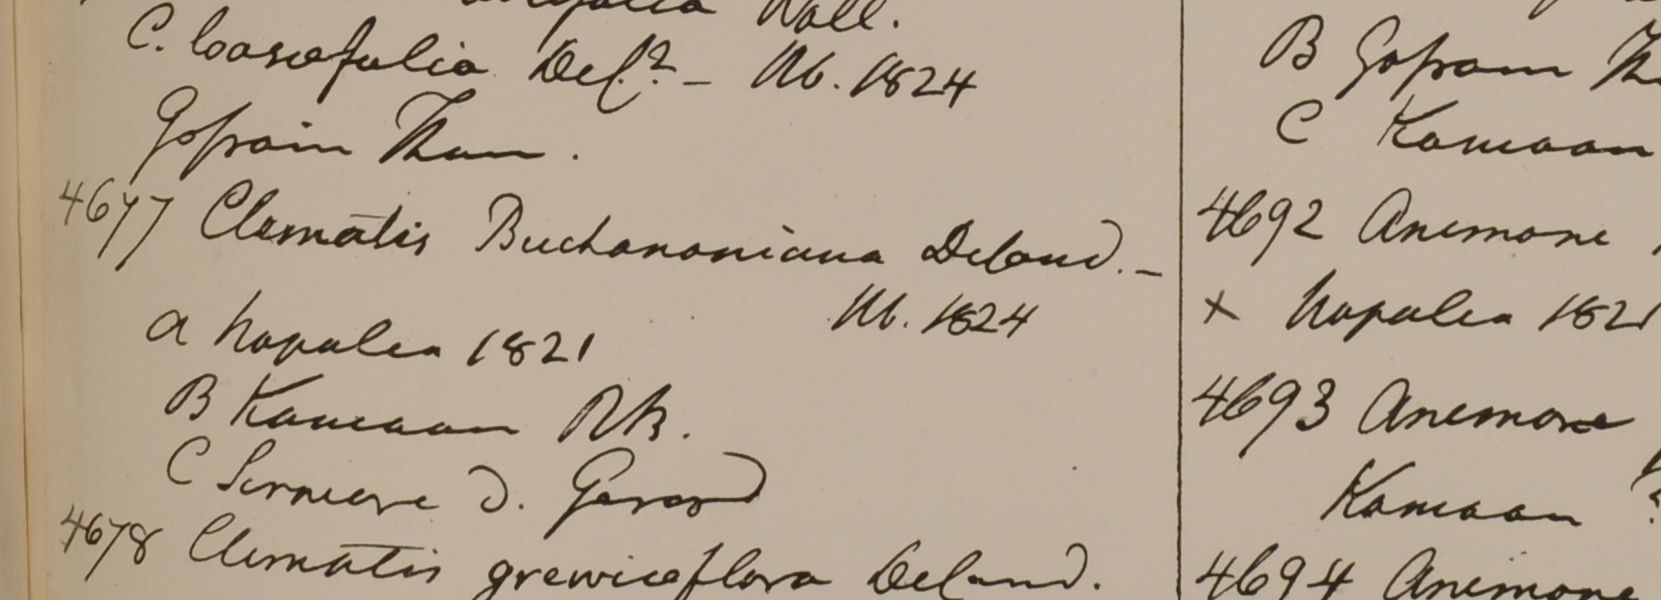 Wall.
C. loasæfolia Del.? – Hb. 1824
Gossain Than.
4677 Clematis Buchananiana Decand. –
Hb. 1824
a Napalia 1821
B Kamaon RB.
C Sirmore D. Gerard
4678 Clematis grewiæflora Decand.
B Gossain
C Kamaon
4692 Anemone
x Napalia 1821
4693 Anemone
Kamaon
4694 Anemone